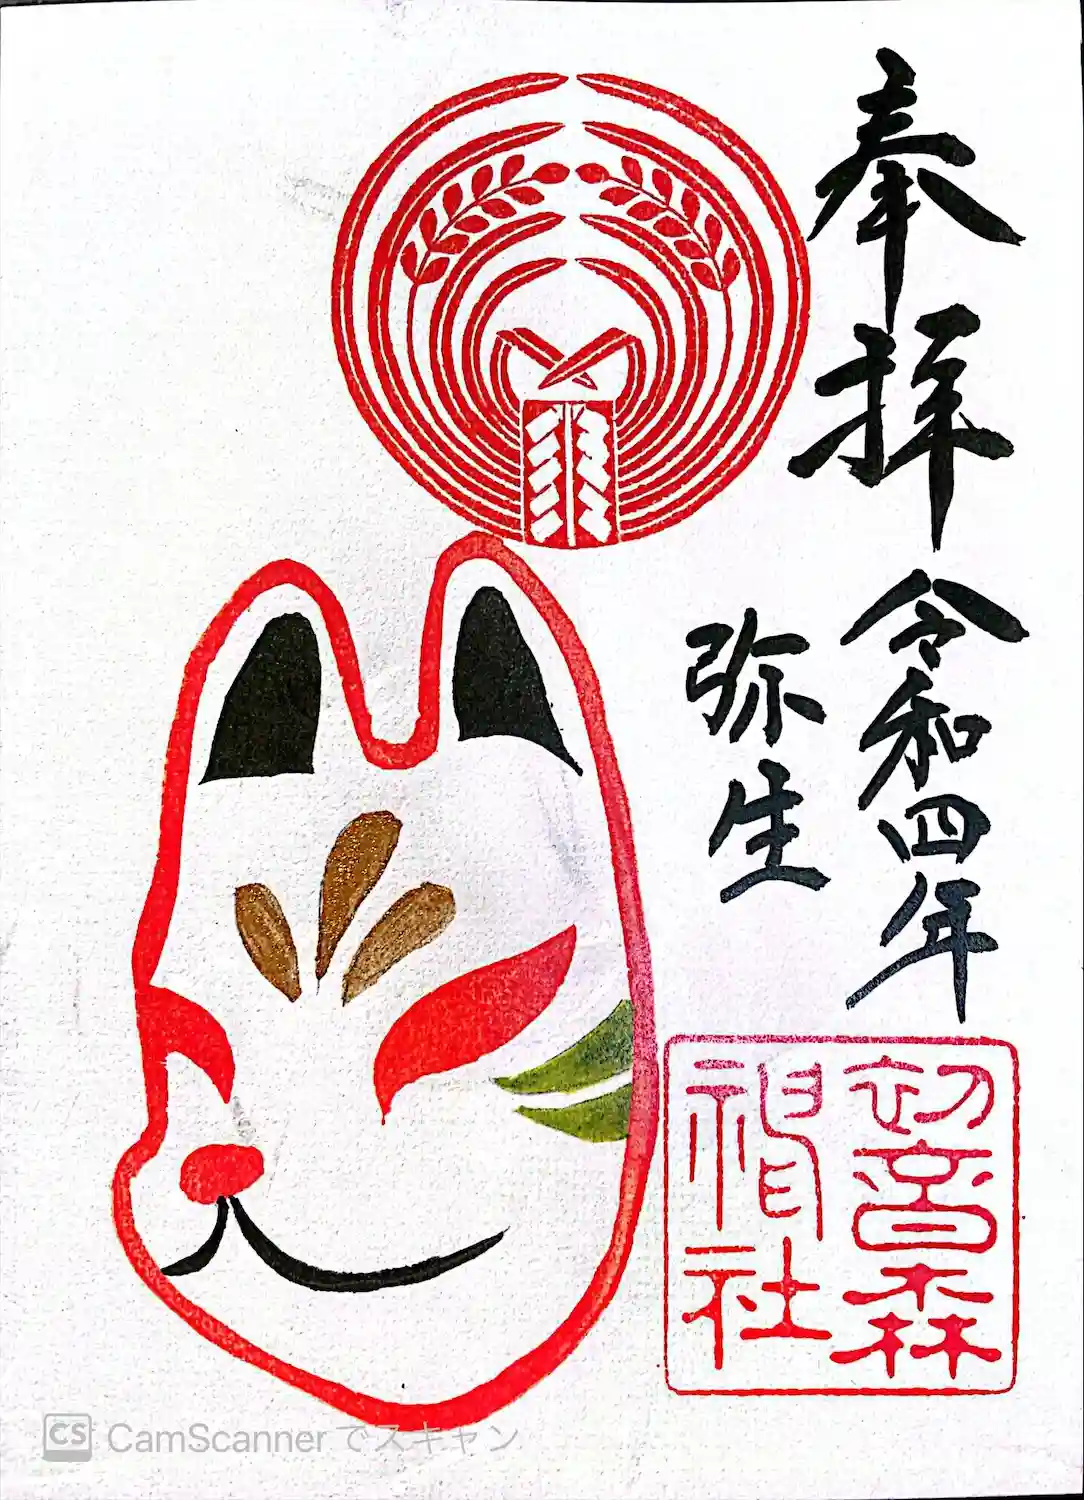 奉拝
令和四年
弥生
初音森
神社
CS CamScannerでスキャン